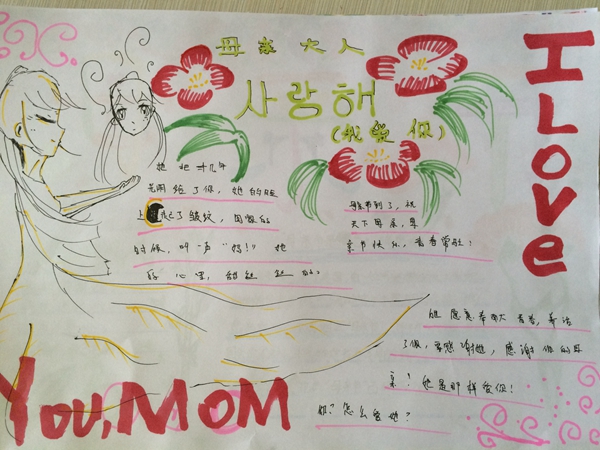 母亲大人
사랑해
(我爱你)
I Love
她把十几年
光阴给了你，她的脸
上 了皱纹，因做的
时候，叫一声“妈！”她
心里，甜
母亲节到了，祝
天下母亲，母
亲节快乐，青春常驻！
她愿意希
了你，要感谢她，感谢你的母
亲！她是那样爱你！
你？怎么 她？
You, MOM